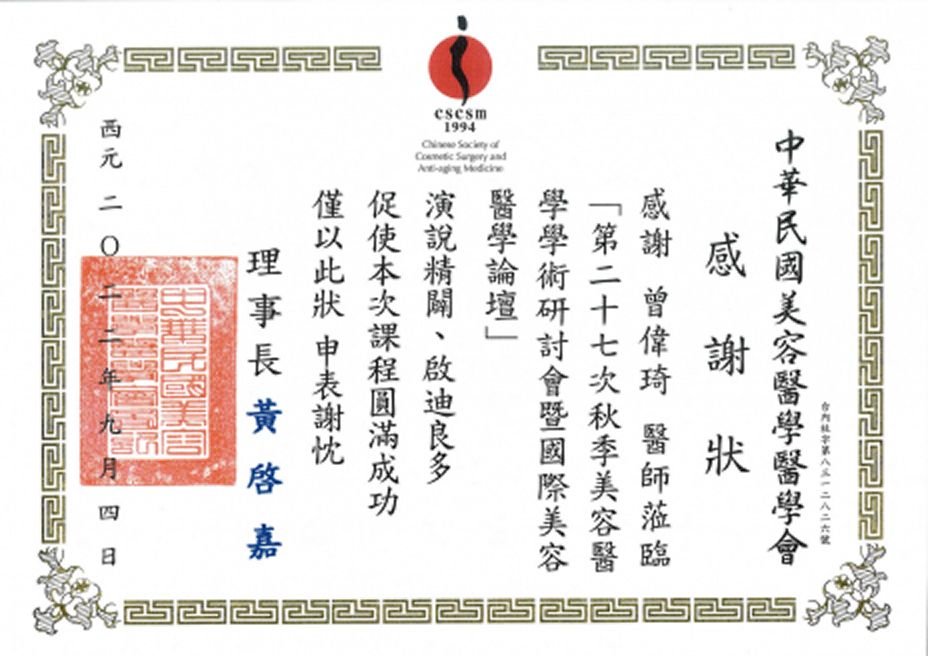 cscsm
1994
Chinese Society of
Cosmetic Surgery and
Anti-aging Medicine
中華民國美容醫學醫學會
台內社字第八三一二八二六號
感謝狀
感謝 曾偉琦 醫師蒞臨
「第二十七次秋季美容醫
學學術研討會暨國際美容
醫學論壇」
演說精闢、啟迪良多
促使本次課程圓滿成功
僅以此狀 申表謝忱
理事長 黃啓嘉
西元二〇二二年九月四日